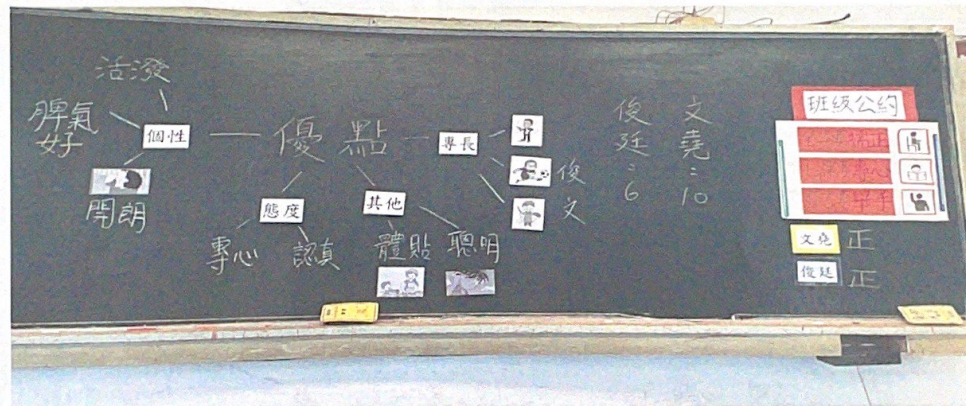 活潑
脾氣好
個性
開朗
優點
態度
專心
認真
其他
體貼
聰明
專長
俊
文
俊廷=6
文堯=10
班級公約
文堯 正
俊廷 正